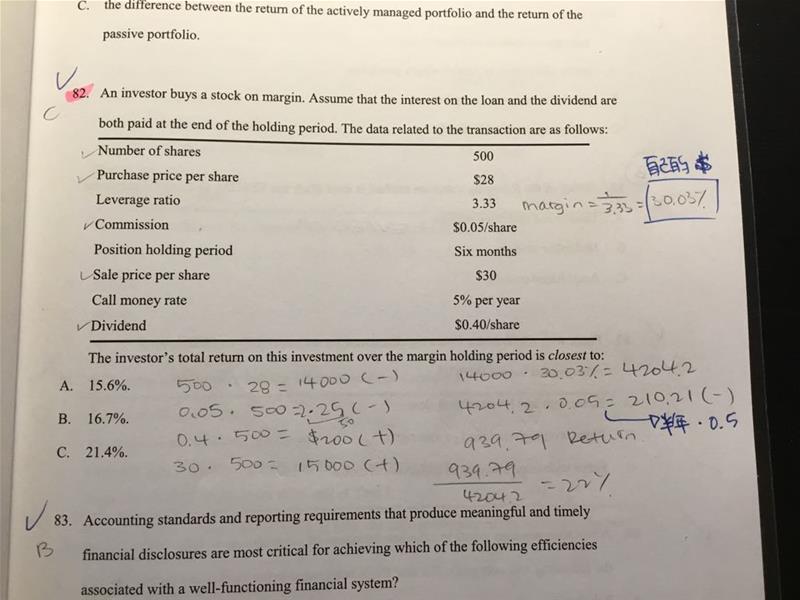 C. the difference between the return of the actively managed portfolio and the return of the
passive portfolio.
82. An investor buys a stock on margin. Assume that the interest on the loan and the dividend are
C
both paid at the end of the holding period. The data related to the transaction are as follows:
Number of shares 500
自己的 $
Purchase price per share $28
Leverage ratio 3.33 margin = 1/3.33 = 30.03%
Commission $0.05/share
Position holding period Six months
Sale price per share $30
Call money rate 5% per year
Dividend $0.40/share
The investor's total return on this investment over the margin holding period is closest to:
A. 15.6%. 500 · 28 = 14000 (-) 14000 · 30.03% = 4204.2
B. 16.7%. 0.05 · 500 = 2.25 (-) 4204.2 · 0.05 = 210.21 (-)
50 · 0.5
C. 21.4%. 0.4 · 500 = $200 (+) 939.79 Return
30 · 500 = 15000 (+) 939.79/4204.2 = 22%
83. Accounting standards and reporting requirements that produce meaningful and timely
B
financial disclosures are most critical for achieving which of the following efficiencies
associated with a well-functioning financial system?